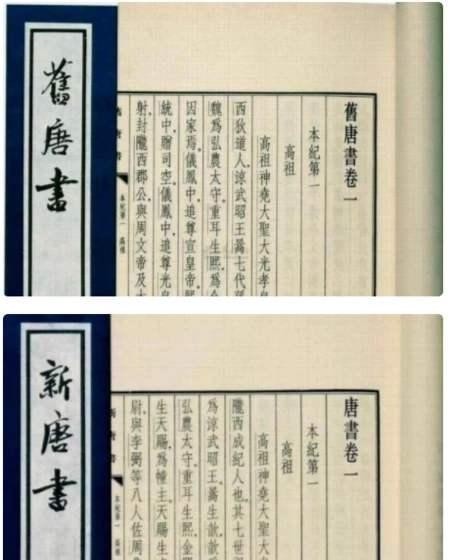 舊唐書
舊唐書卷一
本紀第一
高祖
高祖神堯大聖大光孝皇
西狄道人涼武昭王暠七代孫
魏為弘農太守重耳生熙為金
因家焉儀鳳中追尊宣皇帝熙
統中贈司空儀鳳中追尊光皇
射封隴西郡公與周文帝及太
本紀第一
高祖
新唐書
唐書卷一
本紀第一
高祖
高祖神堯大聖大
隴西成紀人也其七世
為涼武昭王暠生歆歆
弘農太守重耳生熙金
生天賜為幢主天賜生
尉與李弼等八人佐周
本紀第一